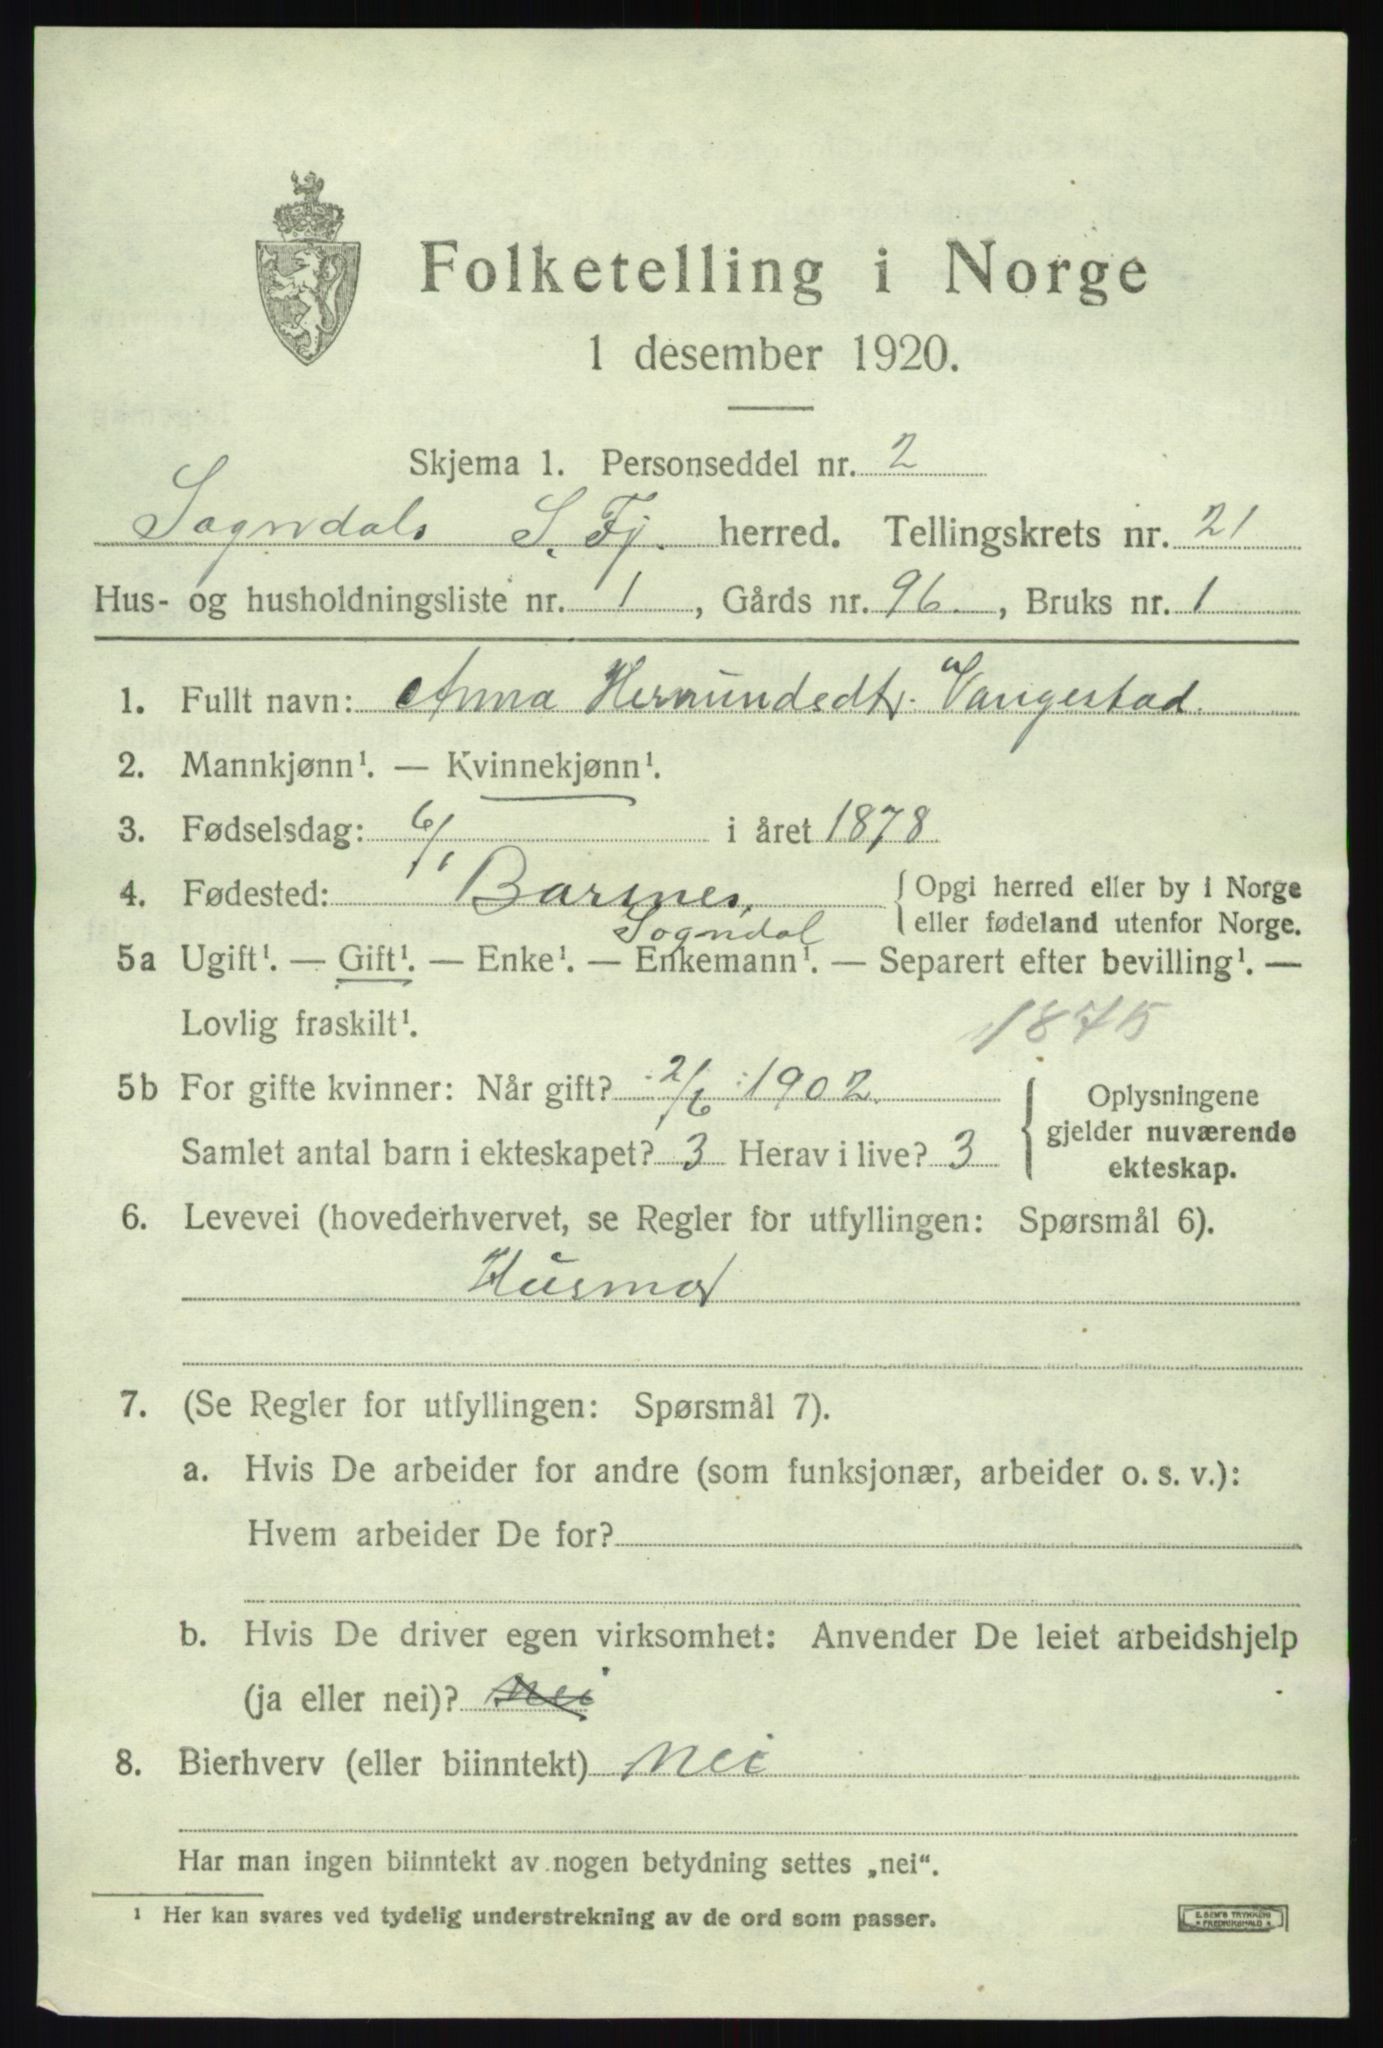 Folketelling i Norge
1 desember 1920.
Skjema 1. Personseddel nr. 2
Sogndals S. Fj. herred. Tellingskrets nr. 21
Hus- og husholdningsliste nr. 1, Gårds nr. 96., Bruks nr. 1
1. Fullt navn: Anna Hermundsdtr. Vangestad.
2. Mannkjønn¹. — Kvinnekjønn¹.
3. Fødselsdag: 6/1 i året 1878
4. Fødested: Barsnes, { Opgi herred eller by i Norge
eller fødeland utenfor Norge.
Sogndal
5a Ugift¹. — Gift¹. — Enke¹. — Enkemann¹. — Separert efter bevilling¹. —
Lovlig fraskilt¹.
1875
5b For gifte kvinner: Når gift? 2/6 1902. { Oplysningene
gjelder nuværende
ekteskap.
Samlet antal barn i ekteskapet? 3 Herav i live? 3
6. Levevei (hovederhvervet, se Regler for utfyllingen: Spørsmål 6).
Husmor
7. (Se Regler for utfyllingen: Spørsmål 7).
a. Hvis De arbeider for andre (som funksjonær, arbeider o. s. v.):
Hvem arbeider De for?
b. Hvis De driver egen virksomhet: Anvender De leiet arbeidshjelp
(ja eller nei)? nei
8. Bierhverv (eller biinntekt) nei
Har man ingen biinntekt av nogen betydning settes „nei“.
¹ Her kan svares ved tydelig understrekning av de ord som passer.
E. SEM'S TRYKKERI
FREDRIKSHALD